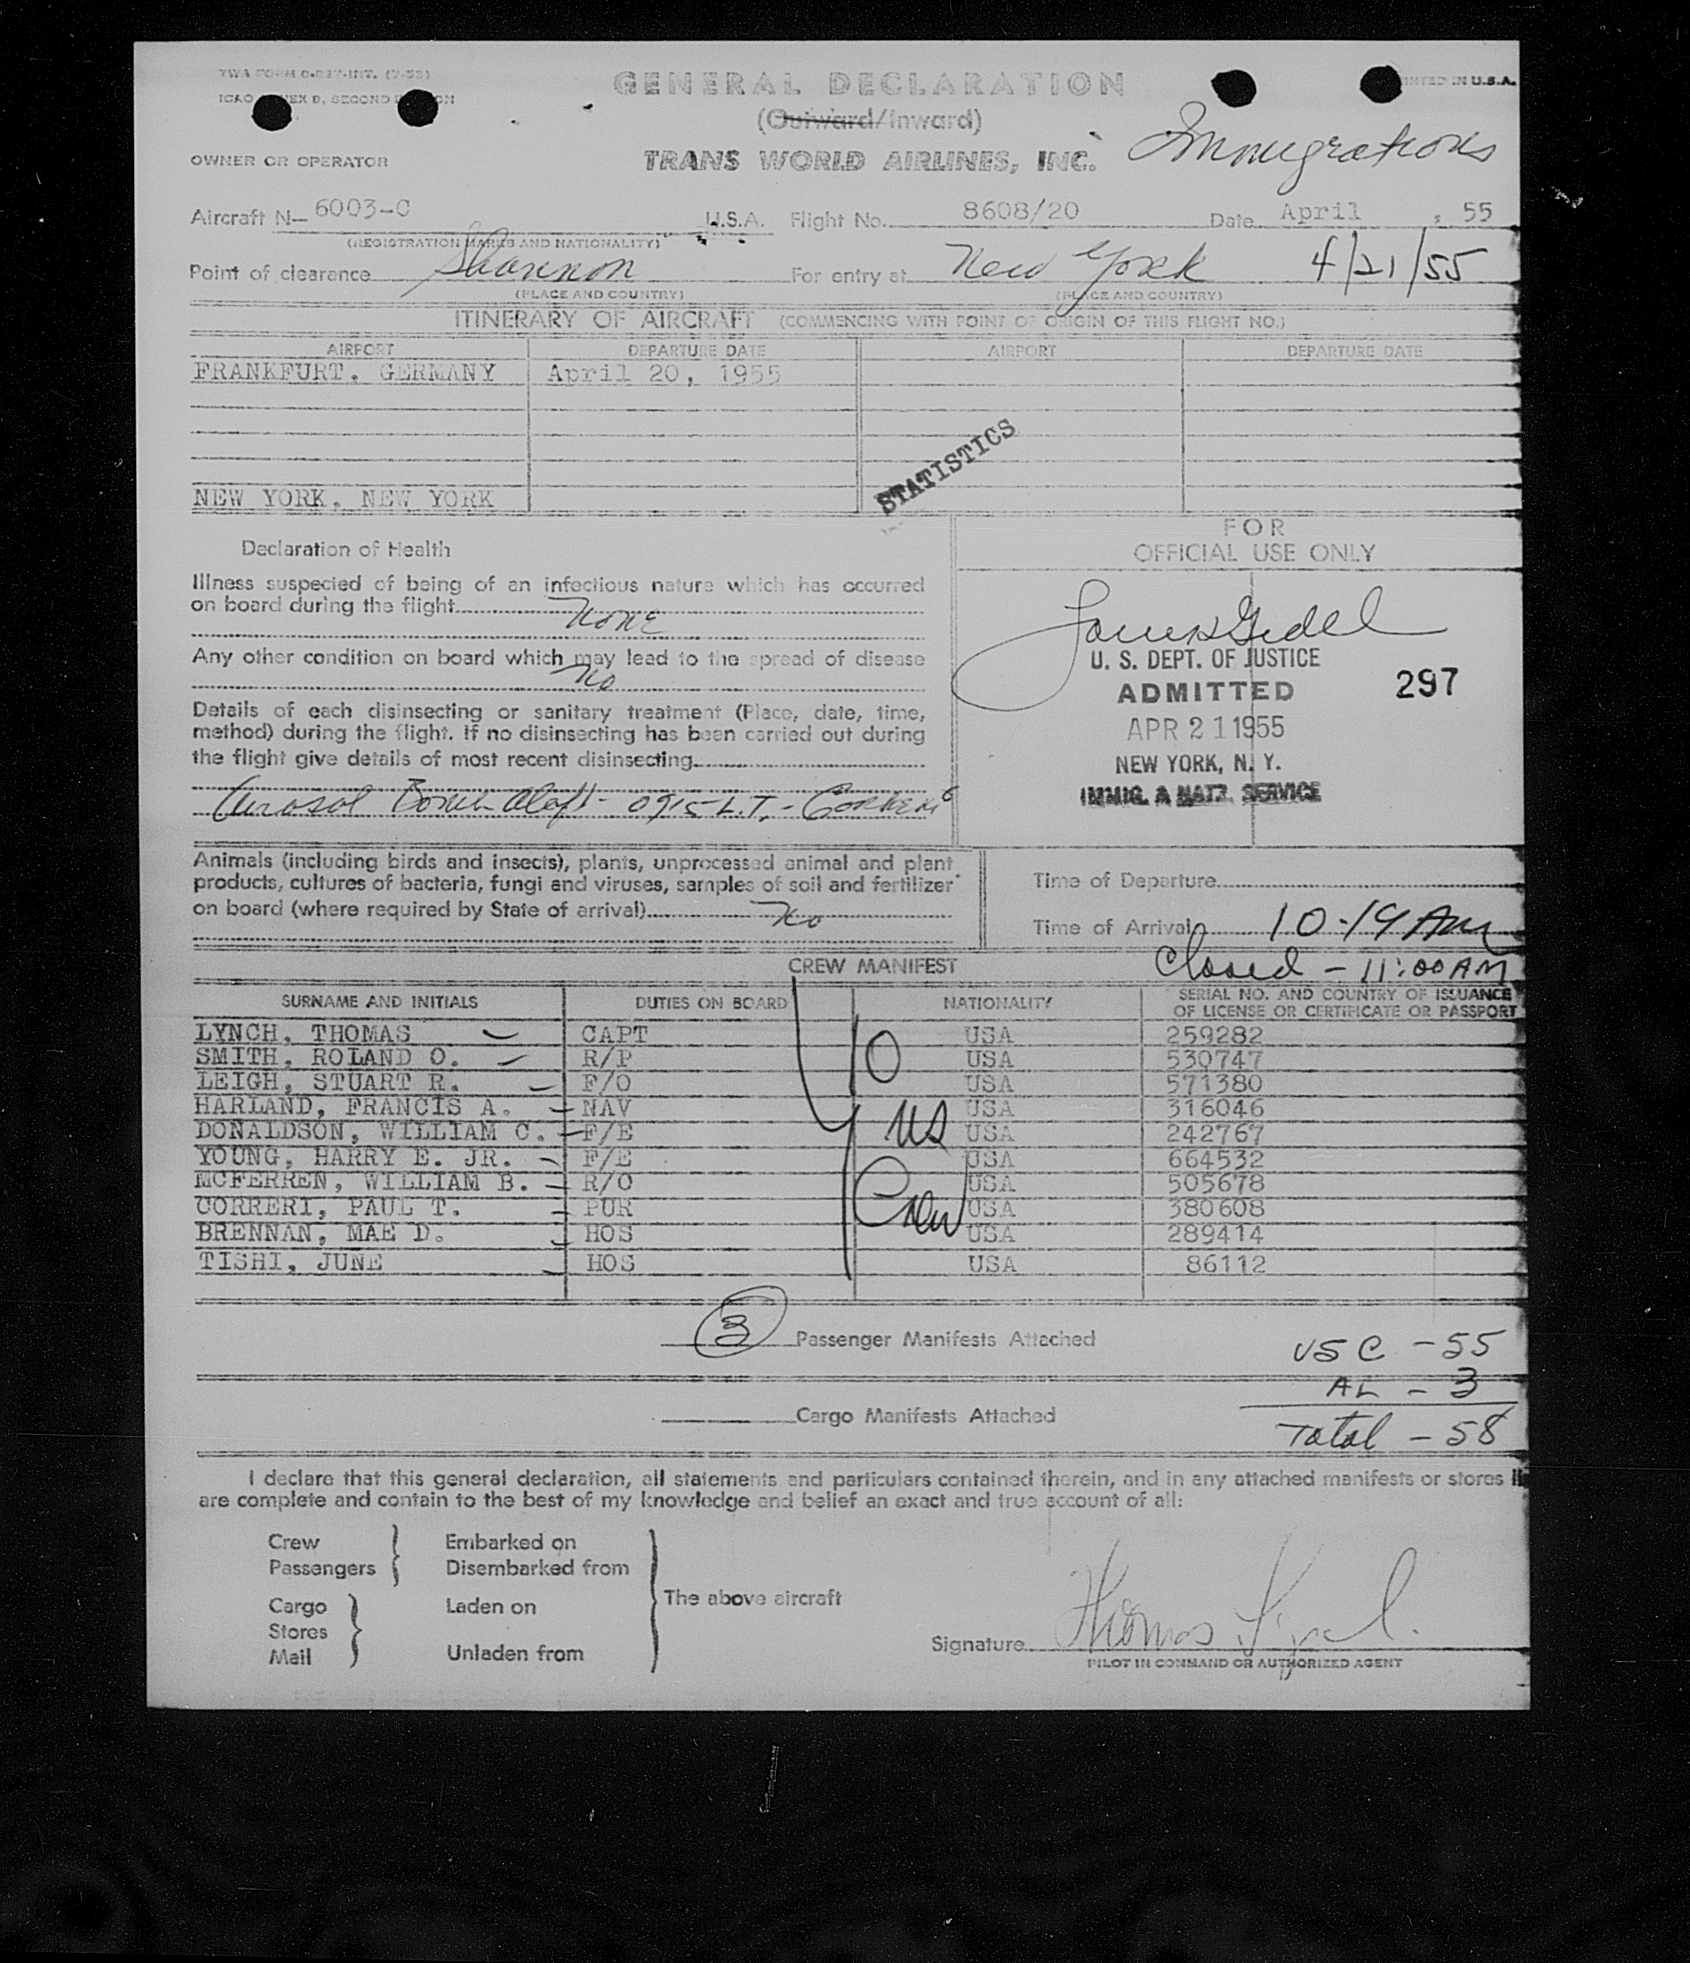 TWA FORM
GENERAL DECLARATION
PRINTED IN U.S.A.
ICAO ANNEX 9, SECOND EDITION
(Outward/Inward)
OWNER OR OPERATOR
TRANS WORLD AIRLINES, INC.
Immigrations
Aircraft N- 6003-C U.S.A. Flight No. 8608/20 Date April , 55
(REGISTRATION MARKS AND NATIONALITY)
Point of clearance Shannon For entry at New York 4/21/55
(PLACE AND COUNTRY) (PLACE AND COUNTRY)
ITINERARY OF AIRCRAFT (COMMENCING WITH POINT OF ORIGIN OF THIS FLIGHT NO.)
AIRPORT DEPARTURE DATE AIRPORT DEPARTURE DATE
FRANKFURT, GERMANY April 20, 1955
STATISTICS
NEW YORK, NEW YORK
FOR
OFFICIAL USE ONLY
Declaration of Health
Illness suspected of being of an infectious nature which has occurred
on board during the flight None
Any other condition on board which may lead to the spread of disease
No
Details of each disinsecting or sanitary treatment (Place, date, time,
method) during the flight. If no disinsecting has been carried out during
the flight give details of most recent disinsecting
Aerosol Bomb Aloft - 0915 L.T. -
U. S. DEPT. OF JUSTICE
ADMITTED 297
APR 21 1955
NEW YORK, N. Y.
IMMIG. & NATZ. SERVICE
Animals (including birds and insects), plants, unprocessed animal and plant
products, cultures of bacteria, fungi and viruses, samples of soil and fertilizer
on board (where required by State of arrival) No
Time of Departure
Time of Arrival 10-19 AM
Closed - 11:00 AM
CREW MANIFEST
SURNAME AND INITIALS DUTIES ON BOARD NATIONALITY SERIAL NO. AND COUNTRY OF ISSUANCE
OF LICENSE OR CERTIFICATE OR PASSPORT
LYNCH, THOMAS CAPT USA 259282
SMITH, ROLAND O. R/P USA 530747
LEIGH, STUART R. F/O USA 571380
HARLAND, FRANCIS A. NAV USA 316046
DONALDSON, WILLIAM C. F/E USA 242767
YOUNG, HARRY E. JR. F/E USA 664532
MCFERREN, WILLIAM B. R/O USA 505678
CORRERI, PAUL T. PUR USA 380608
BRENNAN, MAE D. HOS USA 289414
TISHI, JUNE HOS USA 86112
10
US
Crew
3 Passenger Manifests Attached
USC - 55
AL - 3
Cargo Manifests Attached
Total - 58
I declare that this general declaration, all statements and particulars contained therein, and in any attached manifests or stores
are complete and contain to the best of my knowledge and belief an exact and true account of all:
Crew
Passengers
Embarked on
Disembarked from
Cargo
Stores
Mail
Laden on
Unladen from
The above aircraft
Signature Thomas Lynch
PILOT IN COMMAND OR AUTHORIZED AGENT